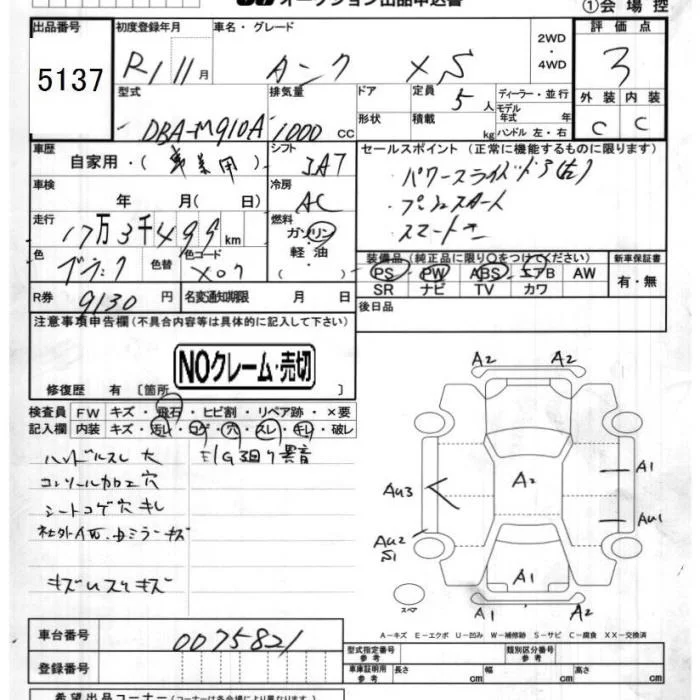 オークション出品申込書
①会場控
出品番号 初度登録年月 車名・グレード 2WD・4WD 評価点
5137 R1 11月 タンク XS 3
型式 排気量 ドア 定員 5人 ディーラー・並行 外装 内装
DBA-M910A 1000cc 形状 積載 kg モデル年式 年 ハンドル 左・右 C C
車歴 自家用・(事業用) シフト IAT セールスポイント (正常に機能するものに限ります)
車検 年 月(日) 冷房 AC ・パワースライドドア(左)
・プッシュスタート
・スマートキー
走行 17万3千499km 燃料 ガソリン・軽油・( )
色 ブラック 色替 色コード X07
装備品 (純正品に限り〇をつけてください) 新車保証書
PS PW ABS エアB AW 有・無
SR ナビ TV カワ
R券 9130円 名変通知期限 月 日 後日品
注意事項申告欄(不具合内容等は具体的に記入して下さい)
NOクレーム・売切
修復歴 有 [箇所 ]
検査員記入欄 FW キズ・飛石・ヒビ割・リペア跡・×要
内装 キズ・汚レ・コゲ・穴・スレ・キレ・破レ
ハンドルスレ大 E/G回り異音
コンソール加工穴
シートコゲ穴キレ
社外AW、ドミラーキズ
キズUスリキズ
A2 A2
A2
A1
AU3
AU1
AU2
S1
A1
A1 A2
スペア
A-キズ E-エクボ U-凹み W-補修跡 S-サビ C-腐食 XX-交換済
車台番号 0075821
登録番号
型式指定番号 参考 類別区分番号 参考
車庫証明用 参考 長さ cm 幅 cm 高さ cm
希望出品コーナー(コーナーは各会場により異なります)